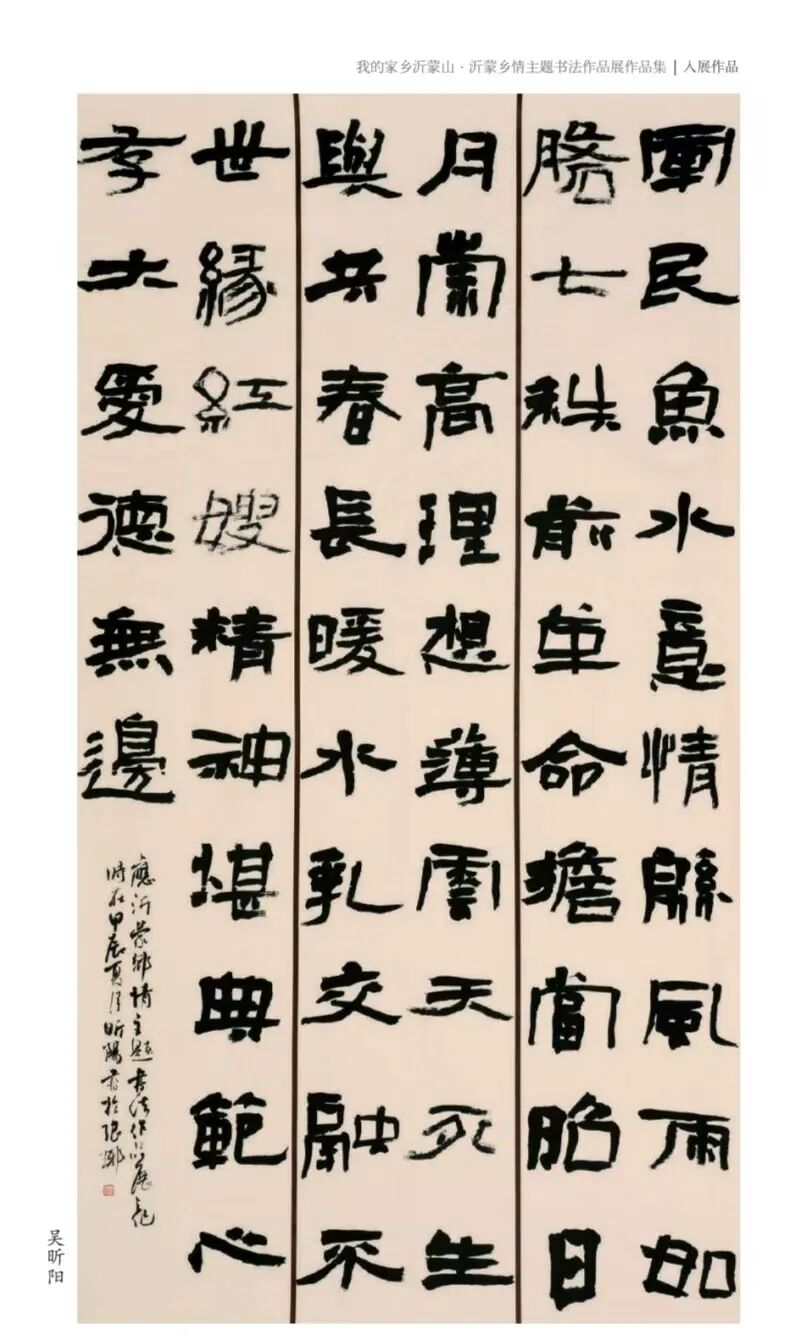 我的家乡沂蒙山·沂蒙乡情主题书法作品展作品集 | 入展作品
軍民魚水意情緜風雨如
七秩前革命擔當昭日
月崇高理想薄雲天死生
與共春長暖水乳交融不
世緣紅嫂精神堪典範心
存大愛德無邊
應沂蒙鄉情主題書法作品展
時在甲辰夏月昕陽書於琅琊
吴昕阳